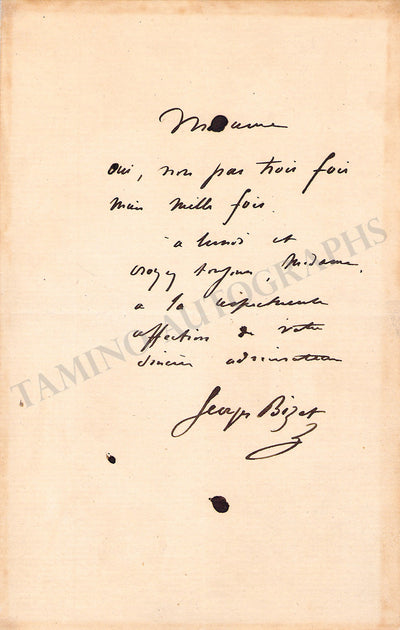 Madame
oui, non pas trois fois
mais mille fois.
à lundi et
croyez toujours, Madame,
à la respectueuse
affection de votre
sincère admirateur
Georges Bizet
TAMINO AUTOGRAPHS